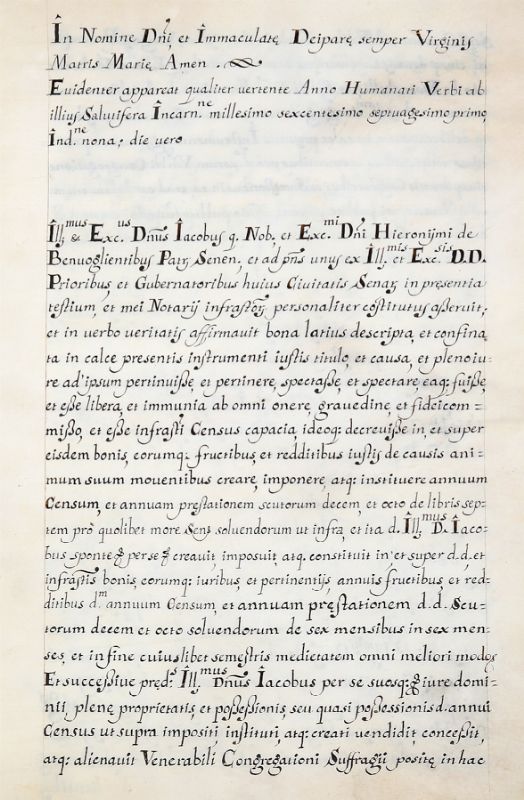 In Nomine Dñi, et Immaculatę Deiparę semper Virginis
Matris Marię Amen.
Evidenter appareat qualiter vertente Anno Humanati Verbi ab
illius Salutifera Incarn.ne millesimo sexcentesimo septuagesimo primo,
Ind.ne nona; die vero
Ill.mus & Exc.us Dñus Iacobus q. Nob. et Exc.mi Dñi Hieronijmi de
Benuoglientibus Patr. Senen, et ad pñs unus ex Ill.mis et Exc.sis D.D.
Prioribus et Gubernatoribus huius Ciuitatis Senar, in presentia
testium, et mei Notarij infrastor, personaliter cōstitutus asseruit,
et in verbo veritatis affirmauit bona latius descripta, et confina
ta in calce presentis instrumenti iustis titulo, et causa, et pleno iu-
re ad' ipsum pertinuisse, et pertinere, spectasse, et spectare, eaq; fuisse,
et esse libera, et immunia ab omni onere, grauedine, et fideicom =
misso, et esse infrasti Census capacia, ideoq; decreuisse in, et super
eisdem bonis, eorumq; fructibus, et redditibus iustis de causis ani-
mum suum mouentibus creare, imponere, atq; instituere annuum
Censum, et annuam prestationem scutorum decem, et octo de libris sep-
tem prō quolibet more Sens soluendorum ut infra, et ita d. Ill.mus D. Iaco-
bus sponte per se creauit, imposuit, atq. constituit in, et super d.d. et
infrastis bonis, eorumq; iuribus et pertinentijs, annuis fructibus, et red-
ditibus d.m annuum Censum, et annuam pręstationem d.d. Scu-
torum decem et octo soluendorum de sex mensibus in sex men-
ses, et in fine cuiuslibet semestris medietatem omni meliori modo,
Et successiue pred.s Ill.mus Dñus Iacobus per se suosq; iure domi-
nii, plenę proprietatis, et possessionis, seu quasi possessionis d. annui
Census ut supra impositi, instituti, atq; creati vendidit, concessit,
atq; alienauit Venerabili Congregationi Suffragij positę in hac